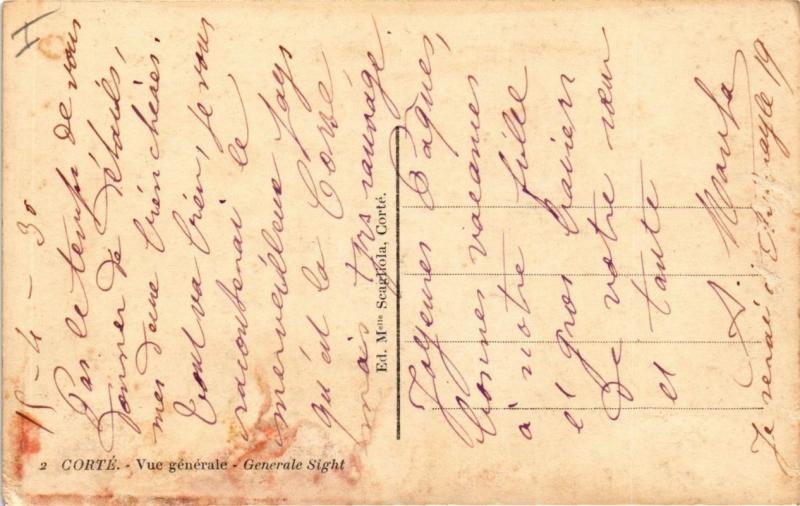 H
15 - 4 - 30
Pas le temps de vous
donner de détails,
mes deux bien chères.
Tout va bien, je vous
raconterai le
merveilleux pays
qu'est la Corse
mais très sauvage.
Joyeuses Pâques,
bonnes vacances
à notre fille
et gros baisers
de votre sœur
et tante
Je serai 19
Ed. Melle Scagliola, Corté.
2 CORTÉ. - Vue générale - Generale Sight